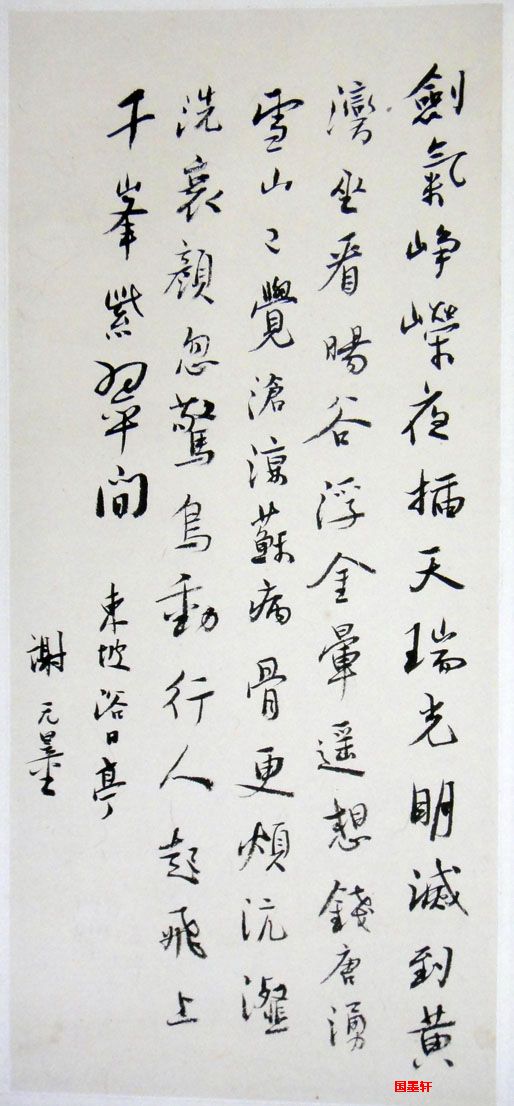 劍氣崢嶸夜插天瑞光明滅到黃
灣坐看暘谷浮金暈遥想錢唐湧
雪山已覺滄涼蘇病骨更煩沆瀣
洗衰顏忽驚鳥動行人起飛上
千峯紫翠間
東坡浴日亭
謝无量
国墨轩